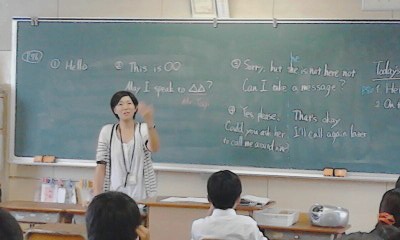 ① Hello
② This is ○○
May I speak to △△?
③ Sorry, but she is not here not
he
Can I take a message?
④ Yes, please.
Could you ask her
to call me around
That's okay
I'll call again later
Today's
① He
2 On t